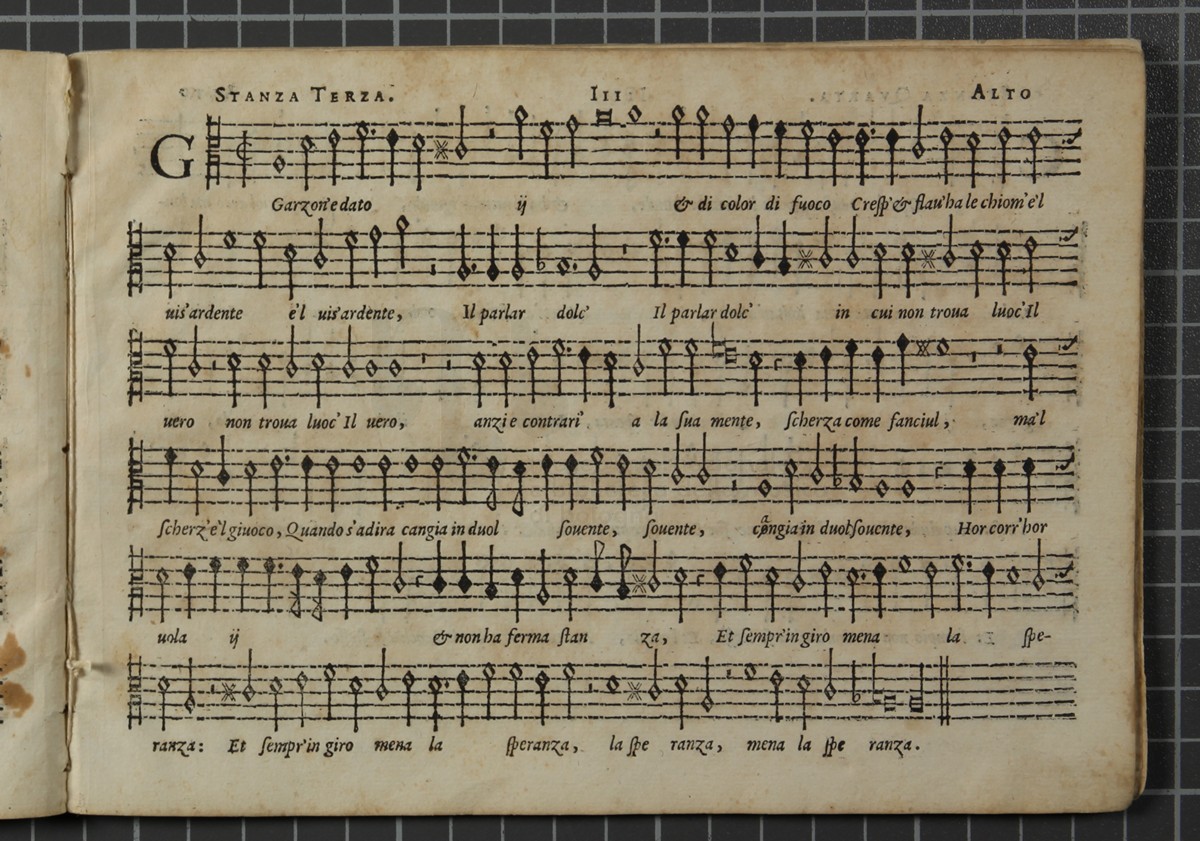 STANZA TERZA. III ALTO
G
Garzon'e dato ij & di color di fuoco Cresp'& flau'ha le chiom'e'l
uis'ardente e'l uis'ardente, Il parlar dolc' Il parlar dolc' in cui non troua luoc'Il
uero non troua luoc'Il uero, anzi e contrari' a la sua mente, scherza come fanciul, ma'l
scherz'e'l giuoco, Quando s'adira cangia in duol souente, souente, cangia in duol souente, Hor corr'hor
uola ij & non ha ferma stan za, Et sempr'in giro mena la spe-
ranza: Et sempr'in giro mena la speranza, la spe ranza, mena la spe ranza.